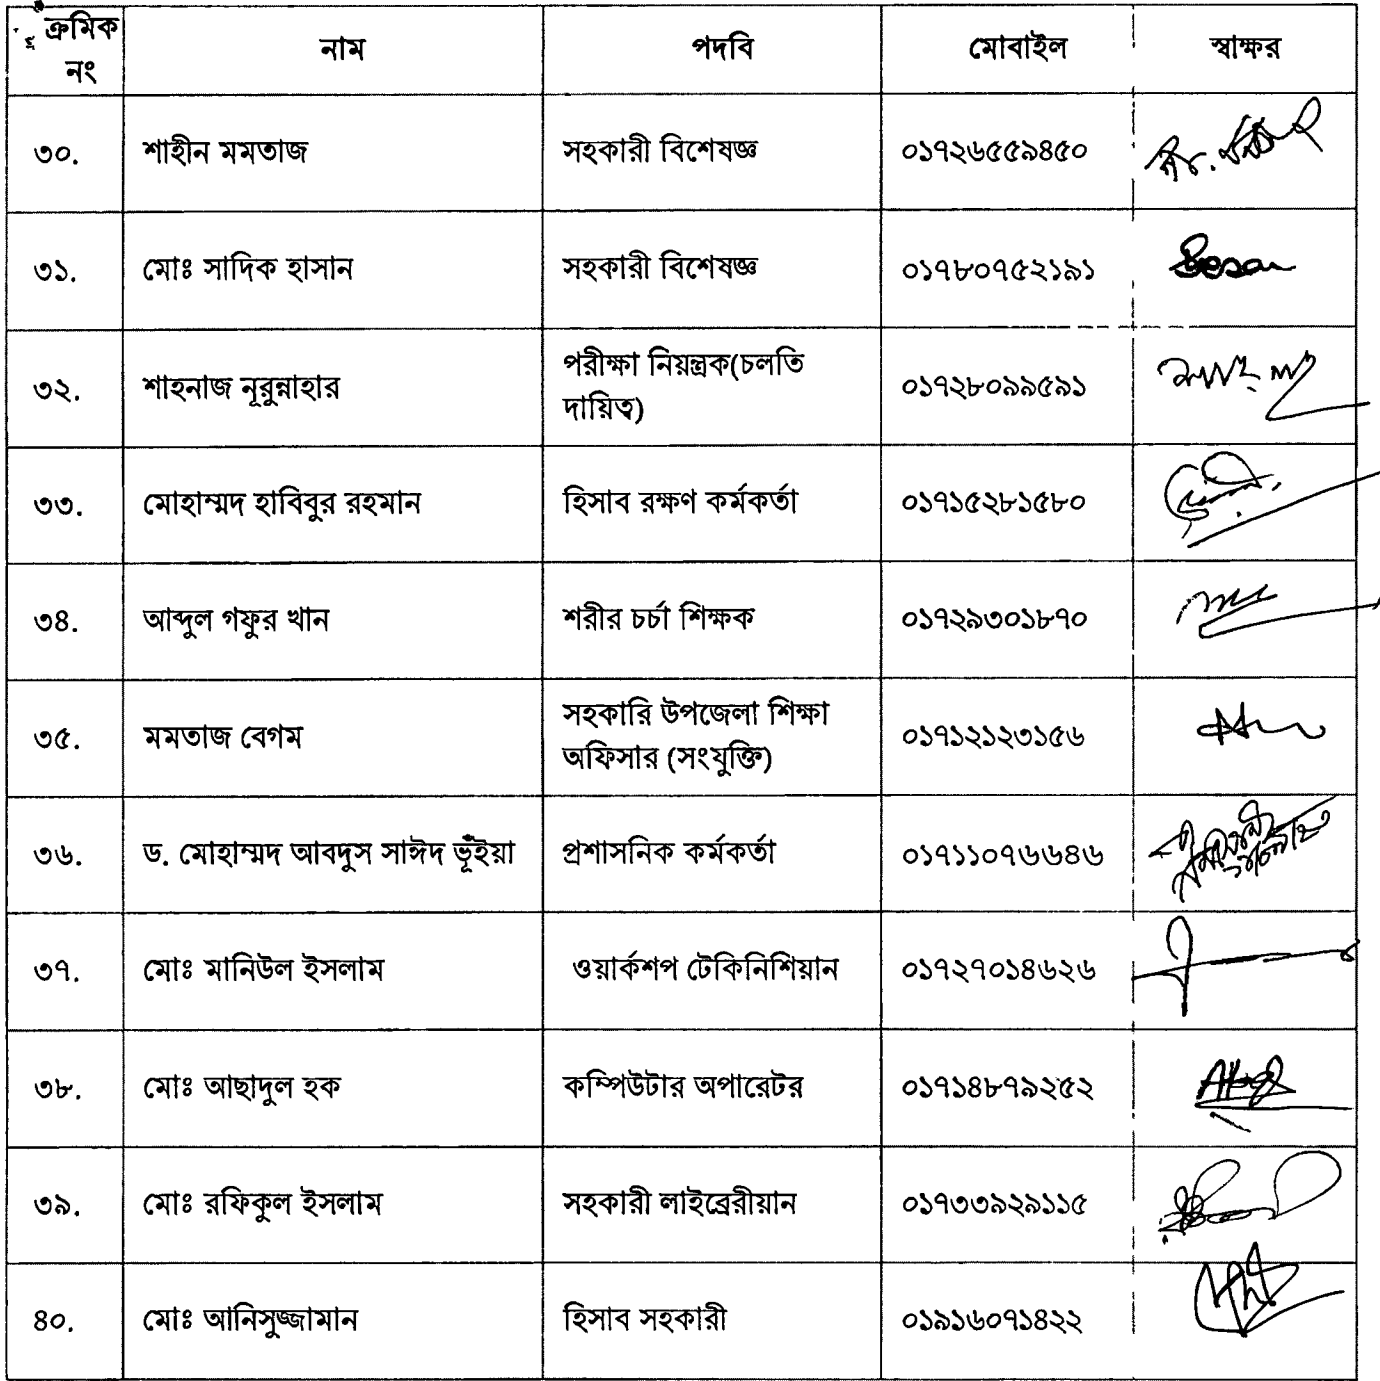 ক্রমিক নং নাম পদবি মোবাইল স্বাক্ষর
৩০. শাহীন মমতাজ সহকারী বিশেষজ্ঞ ০১৭২৬৫৫৯৪৫০
৩১. মোঃ সাদিক হাসান সহকারী বিশেষজ্ঞ ০১৭৮০৭৫২১৯১
৩২. শাহনাজ নূরুন্নাহার পরীক্ষা নিয়ন্ত্রক(চলতি দায়িত্ব) ০১৭২৮০৯৯৫৯১
৩৩. মোহাম্মদ হাবিবুর রহমান হিসাব রক্ষণ কর্মকর্তা ০১৭১৫২৮১৫৮০
৩৪. আব্দুল গফুর খান শরীর চর্চা শিক্ষক ০১৭২৯৩০১৮৭০
৩৫. মমতাজ বেগম সহকারি উপজেলা শিক্ষা অফিসার (সংযুক্তি) ০১৭১২১২৩১৫৬
৩৬. ড. মোহাম্মদ আবদুস সাঈদ ভূঁইয়া প্রশাসনিক কর্মকর্তা ০১৭১১০৭৬৬৪৬
৩৭. মোঃ মানিউল ইসলাম ওয়ার্কশপ টেকিনিশিয়ান ০১৭২৭০১৪৬২৬
৩৮. মোঃ আছাদুল হক কম্পিউটার অপারেটর ০১৭১৪৮৭৯২৫২
৩৯. মোঃ রফিকুল ইসলাম সহকারী লাইব্রেরীয়ান ০১৭৩৩৯২৯১১৫
৪০. মোঃ আনিসুজ্জামান হিসাব সহকারী ০১৯১৬০৭১৪২২